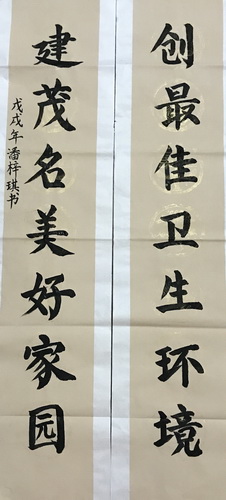 创最佳卫生环境
建茂名美好家园
戊戌年潘梓琪书